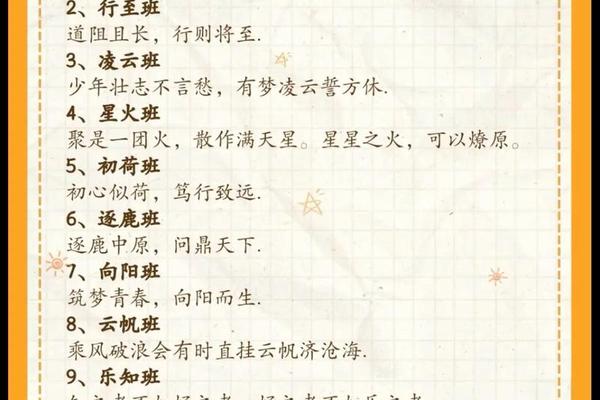 2、行至班
道阻且长，行则将至.
3、凌云班
少年壮志不言愁，有梦凌云誓方休.
4、星火班
聚是一团火，散作满天星。星星之火，可以燎原。
5、初荷班
初心似荷，笃行致远.
6、逐鹿班
逐鹿中原，问鼎天下.
7、向阳班
筑梦青春，向阳而生.
8、云帆班
乘风破浪会有时直挂云帆济沧海.
9、乐知班